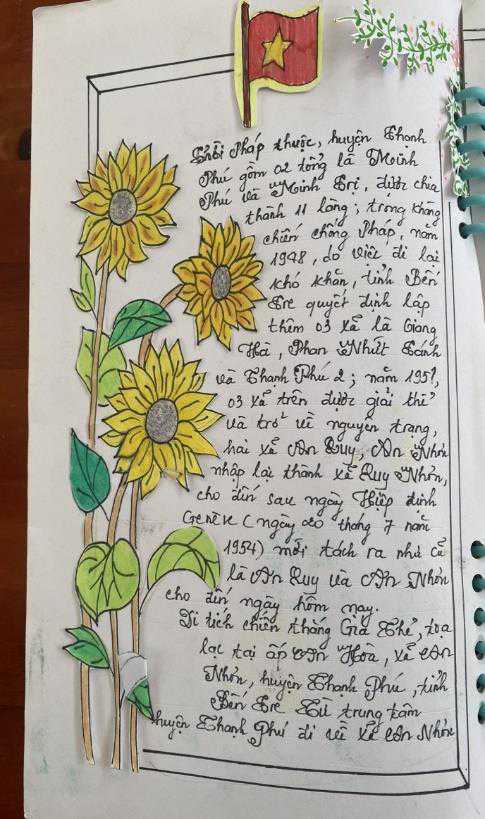 Thời Pháp thuộc, huyện Thạnh
Phú gồm 02 tổng là Moinh
Phú và Moinh Trị, được chia
thành 11 làng; trong kháng
chiến chống Pháp, năm
1948, do việc đi lại
khó khăn, tỉnh Bến
Tre quyết định lập
thêm 03 xã là Giang
Hà, Phan Nhứt Tánh
và Thạnh Phú 2; năm 1951,
03 xã trên được giải thể
và trở về nguyên trạng,
hai xã An Quy, An Nhơn
nhập lại thành xã Quy Nhơn,
cho đến sau ngày Hiệp định
Genève (ngày 20 tháng 7 năm
1954) mới tách ra như cũ
là An Quy và An Nhơn
cho đến ngày hôm nay.
Di tích chiến thắng Giá Thẻ, tọa
lạc tại ấp An Hòa, xã An
Nhơn, huyện Thạnh Phú, tỉnh
Bến Tre Từ trung tâm
huyện Thạnh Phú đi về xã An Nhơn